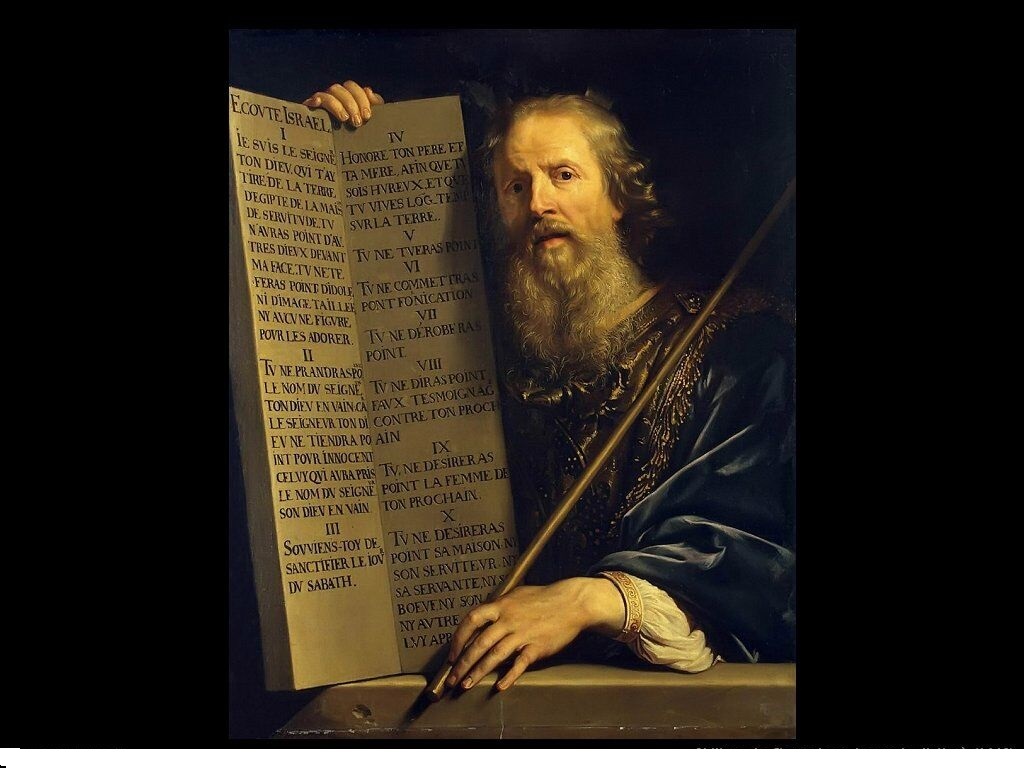 ECOVTE ISRAEL
I
IE SVIS LE SEIGNE
TON DIEV, QVI T'AY
TIRE DE LA TERRE
D'EGIPTE DE LA MAIS
DE SERVITVDE. TV
N'AVRAS POINT D'AV
TRES DIEVX DEVANT
MA FACE. TV NE TE
FERAS POINT D'IDOLE
NI D'IMAGE TAILLEE
NY AVCVNE FIGVRE
POVR LES ADORER.
II
TV NE PRANDRAS PO
LE NOM DV SEIGNE
TON DIEV EN VAIN. CA
LE SEIGNEVR TON DI
EV NE TIENDRA PO
INT POVR INNOCENT
CELVY QVI AVRA PRIS
LE NOM DV SEIGNE
SON DIEV EN VAIN.
III
SOVVIENS-TOY DE
SANCTIFIER LE IOV
DV SABATH.
IV
HONORE TON PERE ET
TA MERE, AFIN QVE TV
SOIS HVREVX, ET QVE
TV VIVES LOG-TEMP
SVR LA TERRE.
V
TV NE TVERAS POINT
VI
TV NE COMMETTRAS
POINT FO'NICATION
VII
TV NE DÉROBERAS
POINT.
VIII
TV NE DIRAS POINT
FAVX TESMOIGNAG
CONTRE TON PROCH
AIN
IX
TV, NE DESIRERAS
POINT LA FEMME DE
TON PROCHAIN.
X
TV NE DESIRERAS
POINT SA MAISON, NY
SON SERVITEVR, NY
SA SERVANTE, NY S
BOEVF, NY SON
NY AVTRE
LVY APP